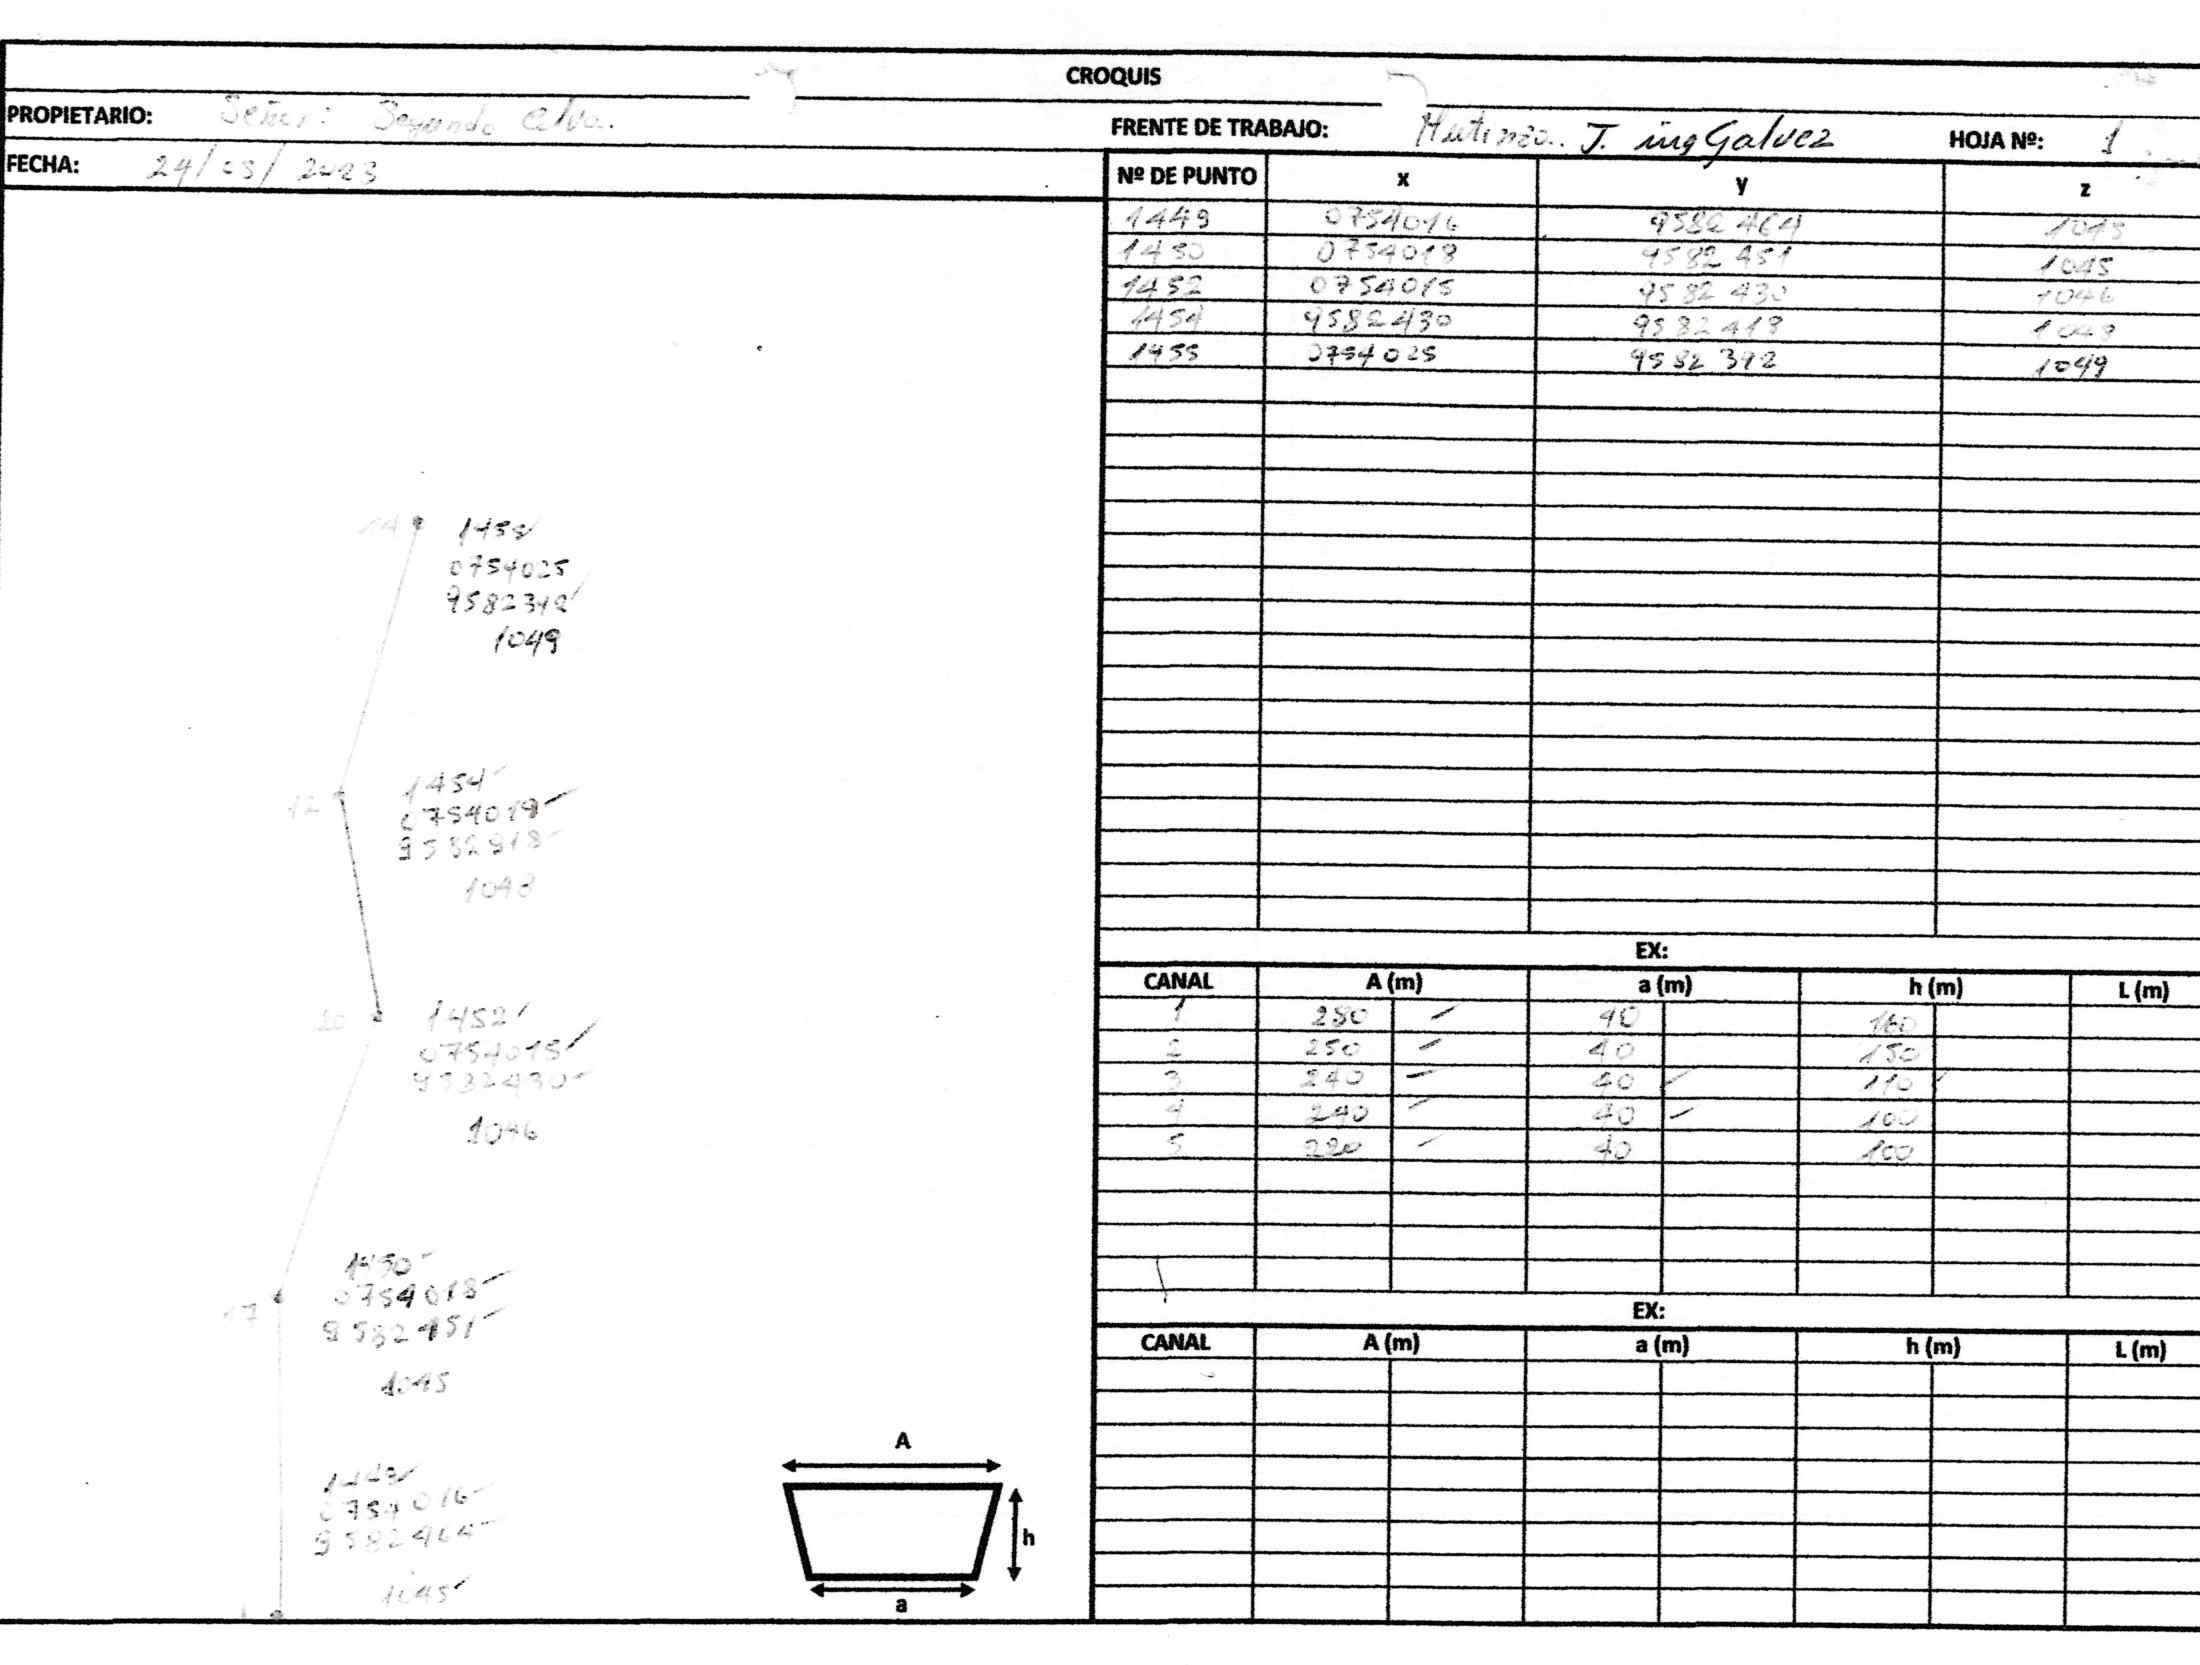 CROQUIS
PROPIETARIO: Señor: Segundo Calva.
FRENTE DE TRABAJO: J. ing Galvez HOJA Nº: 1
FECHA: 24/05/2023
Nº DE PUNTO x y z
1449 0754016 9582464 1045
1450 0754018 9582451 1045
1452 0754015 9582430 1046
1454 9582430 9582418 1048
1455 0754025 9582392 1049
14 1455
0754025
9582392
1049
12 1454
0754019
9582418
1048
20 1452
0754015
9582430
1046
17 1450
0754018
9582451
1045
1449
0754016
9582464
1045
A
h
a
EX:
CANAL A (m) a (m) h (m) L (m)
1 280 40 160
2 250 40 150
3 240 40 110
4 240 40 100
5 220 40 100
EX:
CANAL A (m) a (m) h (m) L (m)